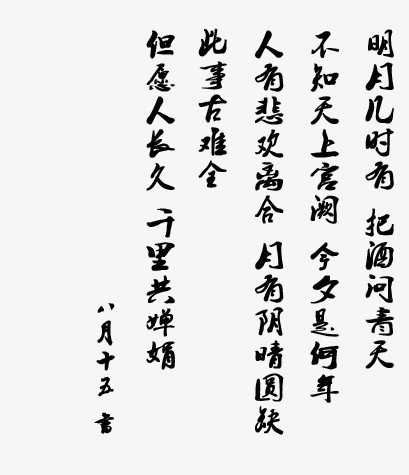 明月几时有 把酒问青天
不知天上宫阙 今夕是何年
人有悲欢离合 月有阴晴圆缺
此事古难全
但愿人长久 千里共婵娟
八月十五 书